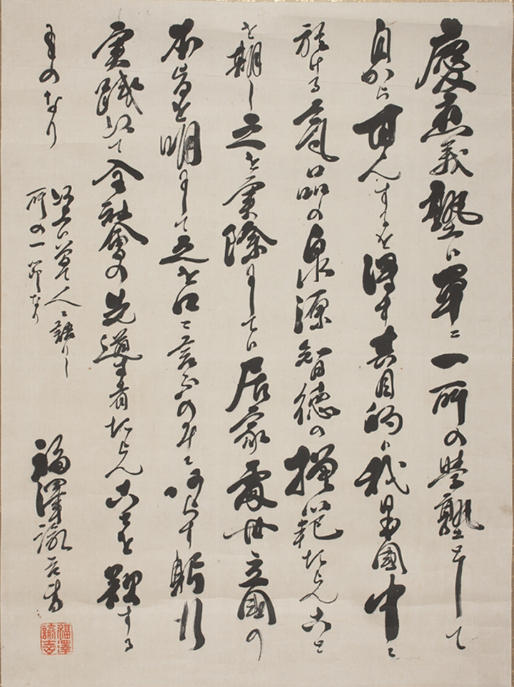 慶應義塾ハ單ニ一所の学塾として
自から甘んするを得す其目的ハ我日本國中ニ
於ける氣品の泉源智徳の模範たらんこと
を期し之を実際にしてハ居家處世立國の
本旨を明にして之を口ニ言ふのみニあらす躬行
実踐以て全社會の先導者たらんことを欲する
ものなり
以上ハ曾て人ニ語りし
所の一節なり
福澤諭吉書
福澤
諭吉